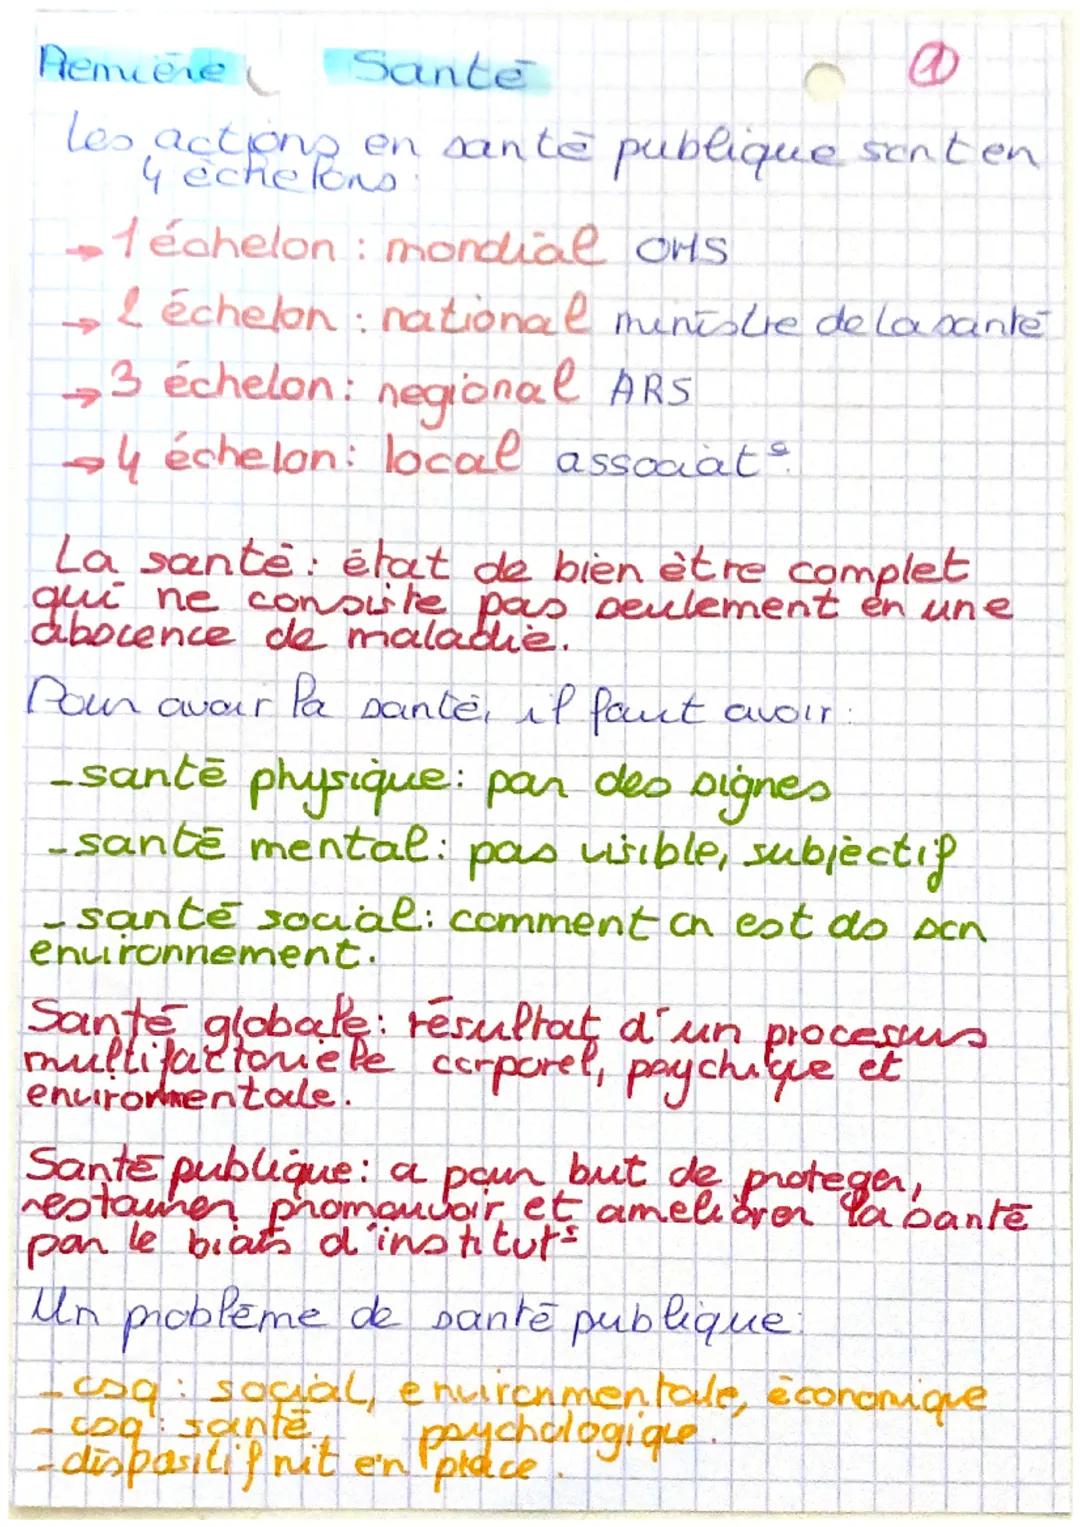 Première Santé 1
les actions en santé publique sont en
4 échelons :
→ 1 échelon : mondial OMS
→ 2 échelon : national ministre de la santé
→ 3 échelon : regional ARS
→ 4 échelon : local associat°.
La santé : état de bien être complet
qui ne consiste pas seulement en une
abscence de maladie.
Pour avoir la santé, il faut avoir :
- santé physique : par des signes
- santé mental : pas visible, subjectif
- santé social : comment on est ds son
environnement.
Santé globale : résultat d'un processus
multifactorielle corporel, psychique et
environnementale.
Santé publique : a pour but de proteger,
restaurer, promouvoir et améliorer la santé
par le biais d'instituts
Un problème de santé publique :
- csq : social, environnmentale, économique
- csq : santé, psychologique.
- dispositif mit en place.